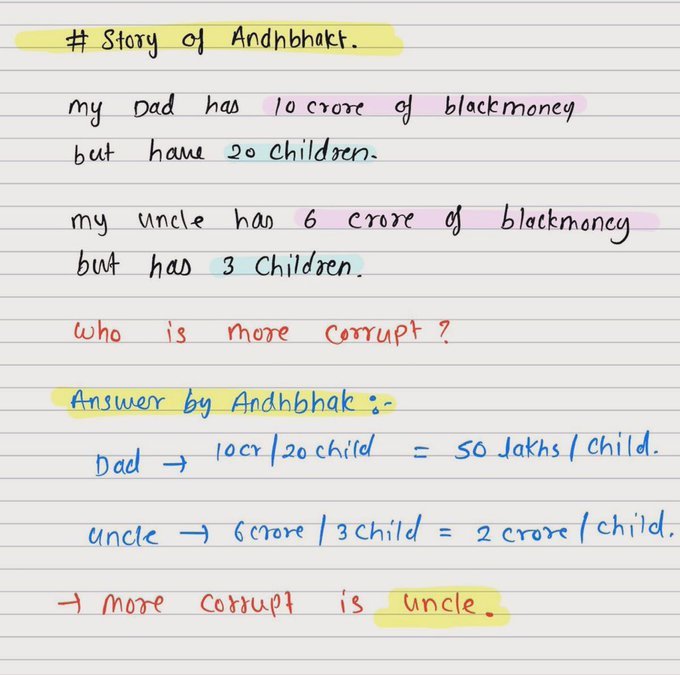 # Story of Andhbhakt.
my Dad has 10 crore of blackmoney
but have 20 children.
my uncle has 6 crore of blackmoney
but has 3 Children.
who is more corrupt?
Answer by Andhbhak :-
Dad → 10cr/20 child = 50 lakhs/child.
uncle → 6 crore / 3 child = 2 crore/child.
→ more corrupt is uncle.